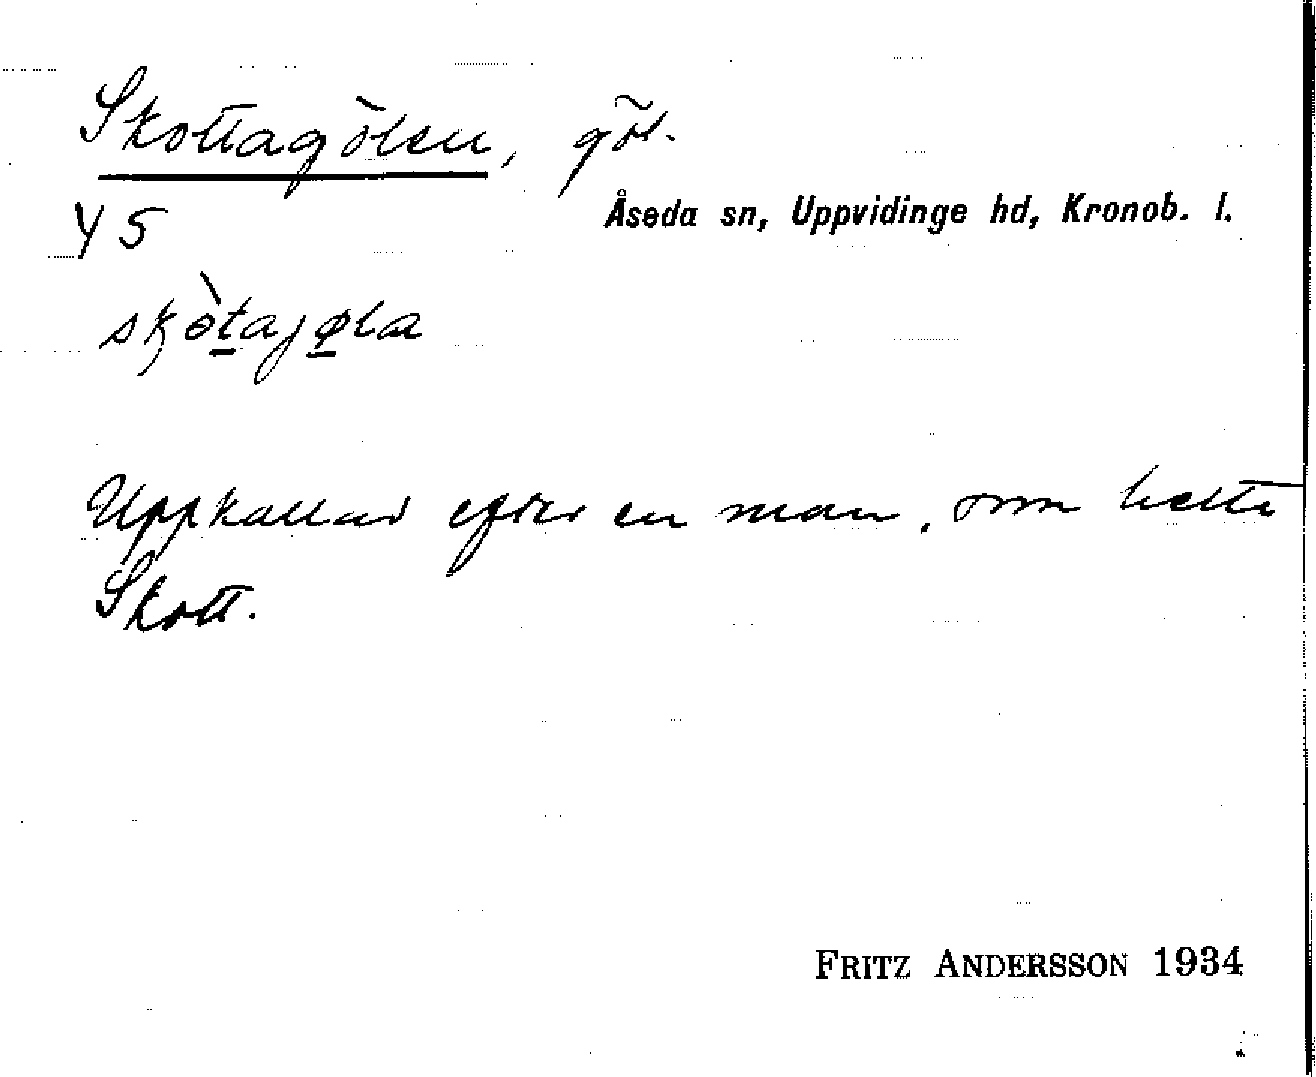 Skottagölen, göl.
Åseda sn, Uppvidinge hd, Kronob. l.
Y 5
skòtajøla
Uppkallad efter en man, som hette
Skott.
FRITZ ANDERSSON 1934